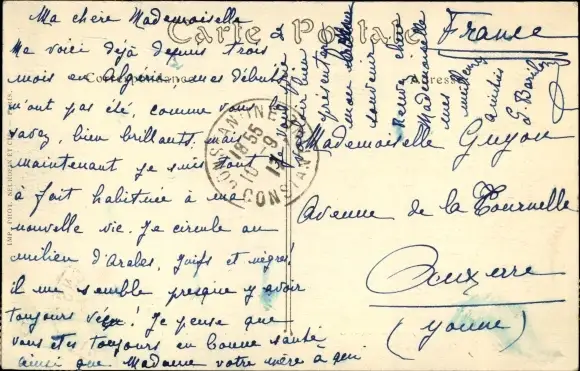 Carte Postale
Correspondance
Adresse
Ma chère Mademoiselle
Me voici déjà depuis trois
mois en Algérie mes débuts
n'ont pas été, comme vous le
savez, bien brillants, mais
maintenant je suis tout
à fait habituée à ma
nouvelle vie. Je circule au
milieu d'Arabes, juifs et nègres!
il me semble presque y avoir
toujours vécu! Je pense que
vous êtes toujours en bonne santé
ainsi que Madame votre mère à qui
je vous prie
de vouloir bien
présenter
mon meilleur
souvenir
chère
Mademoiselle
mes meilleures
amitiés
France
Mademoiselle Guyon
Avenue de la Tournelle
Auxerre
(Yonne)
CONSTANTINE
18 55
10 9
13
CONSTANTINE